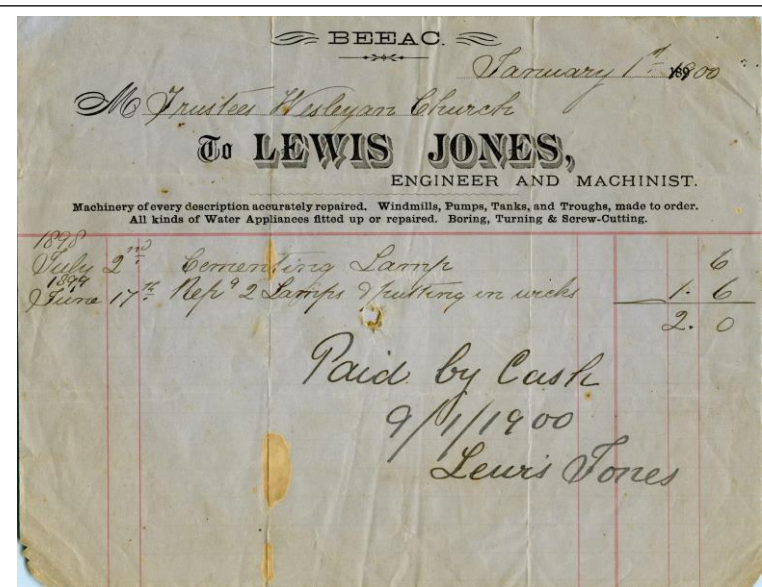 BEEAC.
January 1st 1900
M Trustees Wesleyan Church
To LEWIS JONES,
ENGINEER AND MACHINIST.
Machinery of every description accurately repaired. Windmills, Pumps, Tanks, and Troughs, made to order.
All kinds of Water Appliances fitted up or repaired. Boring, Turning & Screw-Cutting.
1898
July 2nd Cementing Lamp 6
1899
June 17th Repg 2 Lamps & putting in wicks 1. 6
2. 0
Paid by Cash
9/1/1900
Lewis Jones